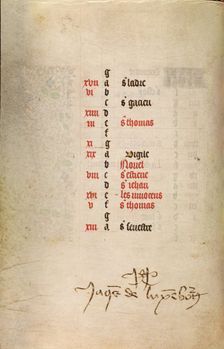 g
xvii a s ladre
vi b
c s gracien
xiiii d
iii e s thomas
f
xi g
xix a vigile
b Nouel
viii c s estiene
d s iehan
xvi e les innocens
v f s thomas
g
xiii a s seuestre
Jaques de